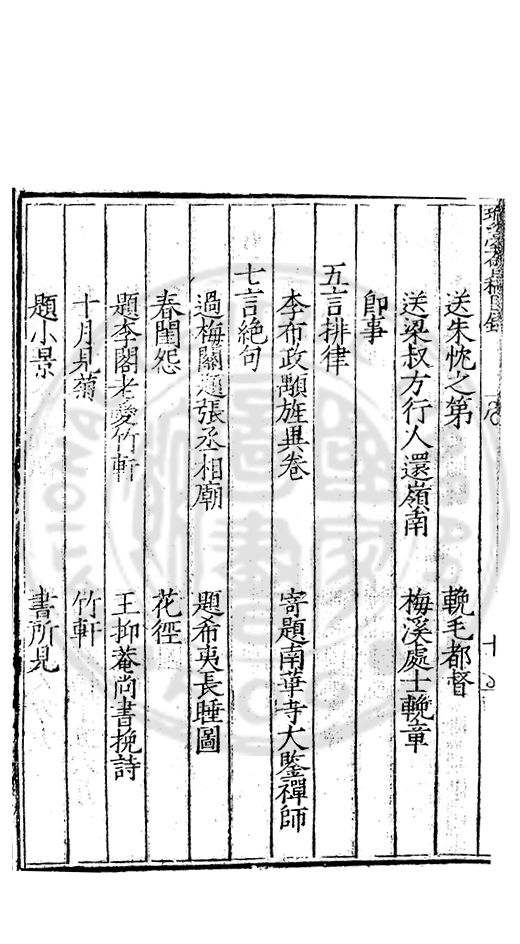 送朱忱之第　輓毛都督
送梁叔方行人還嶺南　梅溪處士輓章
即事
五言排律
李布政顒旌異卷　寄題南華寺大鑒禪師
七言絕句
過梅關題張丞相廟　題希夷長睡圖
春閨怨　花徑
題李閣老愛竹軒　王抑菴尚書挽詩
十月見菊　竹軒
題小景　書所見